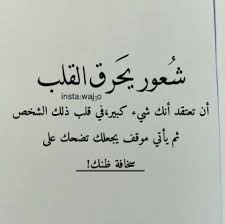 شعور يحرق القلب
insta:waj30
أن تعتقد أنك شيء كبير،في قلب ذلك الشخص
ثم يأتي موقف يجعلك تضحك على
سخافة ظنك!